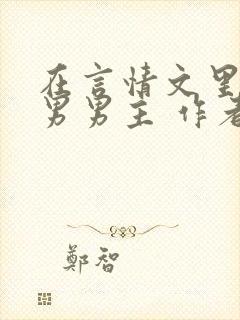 在言情文里
男男主 作者
鄭智